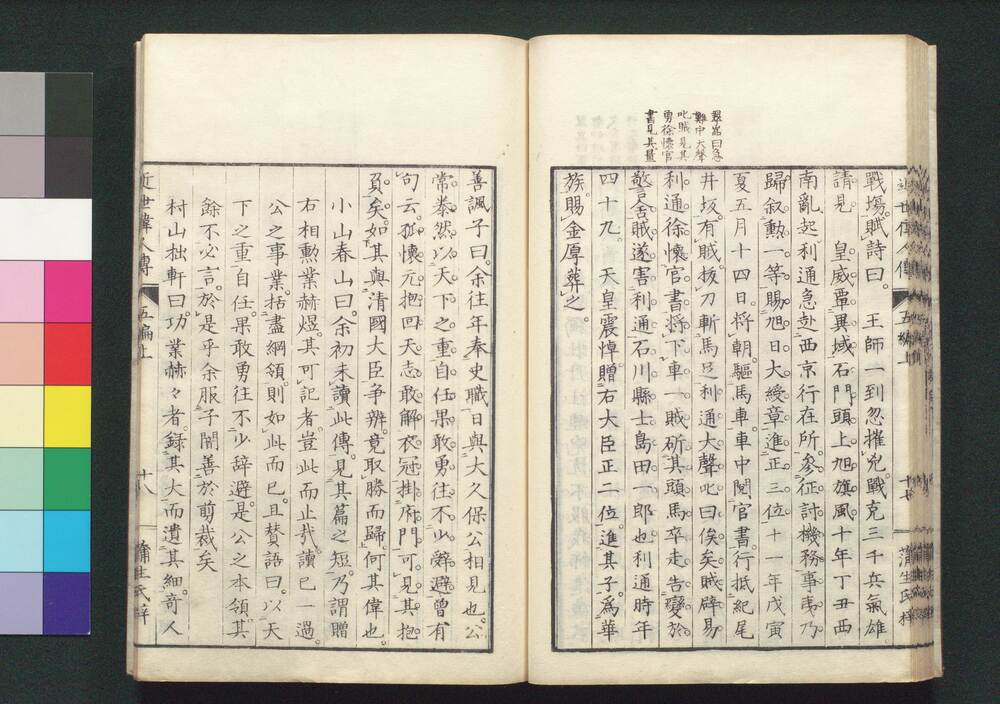 戰塲賦詩曰。王師一到忽摧兇。戰克三千兵氣雄
請見皇威覃異域石門頭上旭旗風十年丁丑西
南亂起利通急赴西京行在所。參征討機務事平乃
歸。叙勳一等賜旭日大綬章進正三位十一年戊寅
夏五月十四日。將朝。驅馬車車中閱官書。行抵紀尾
井坂。有賊。拔刀斬馬足利通大聲叱曰俟矣賊辟易
利通徐懷官書將下車一賊斫其頭馬卒走告變於
警舍賊遂害利通石川縣士島田一郎也利通時年
四十九。天皇震悼贈右大臣正二位進其子。爲華
族。賜金厚葬之。
翠嵒曰急
難中大聲
叱賊見其
勇徐懷官
書見其量
善諷子曰。余往年奉史職日與大久保公相見也。公
常泰然以天下之重自任果敢勇往不少辭避曾有
句云。孤懷元抱回天志敢解衣冠掛府門。可見其抱
負矣。如其與清國大臣爭辨。竟取勝而歸。何其偉也。
小山春山曰。余初未讀此傳。見其篇之短。乃謂贈
右相勳業赫煜。其可記者。豈此而止哉。讀已一過。
公之事業。括盡綱領。則如此而已。且賛語曰。以天
下之重自任果敢勇往不少辭避。是公之本領其
餘不必言。於是乎余服子闇善於剪裁矣
村山拙軒曰。功業赫々者。錄其大而遺其細。奇人
近世偉人傳
五編上
十八
蒲生氏梓